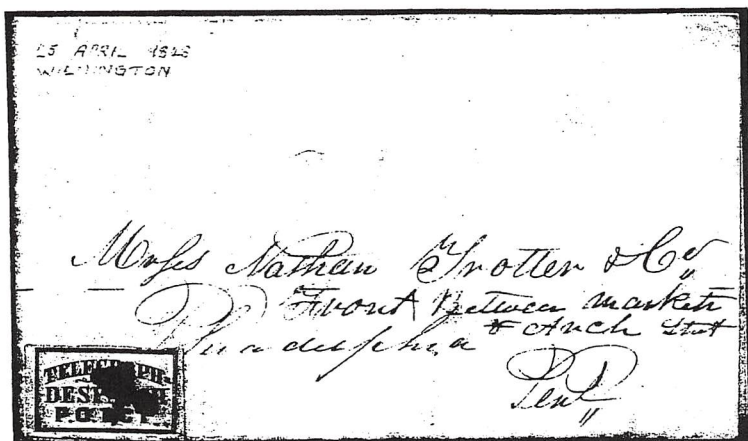 25 APRIL 1848
WILMINGTON
Messs Nathan Trotter & Co
Front Between market
& Arch Stret
Philadelphia
Pen
TELEGRAPH
DESPATCH
P.O.